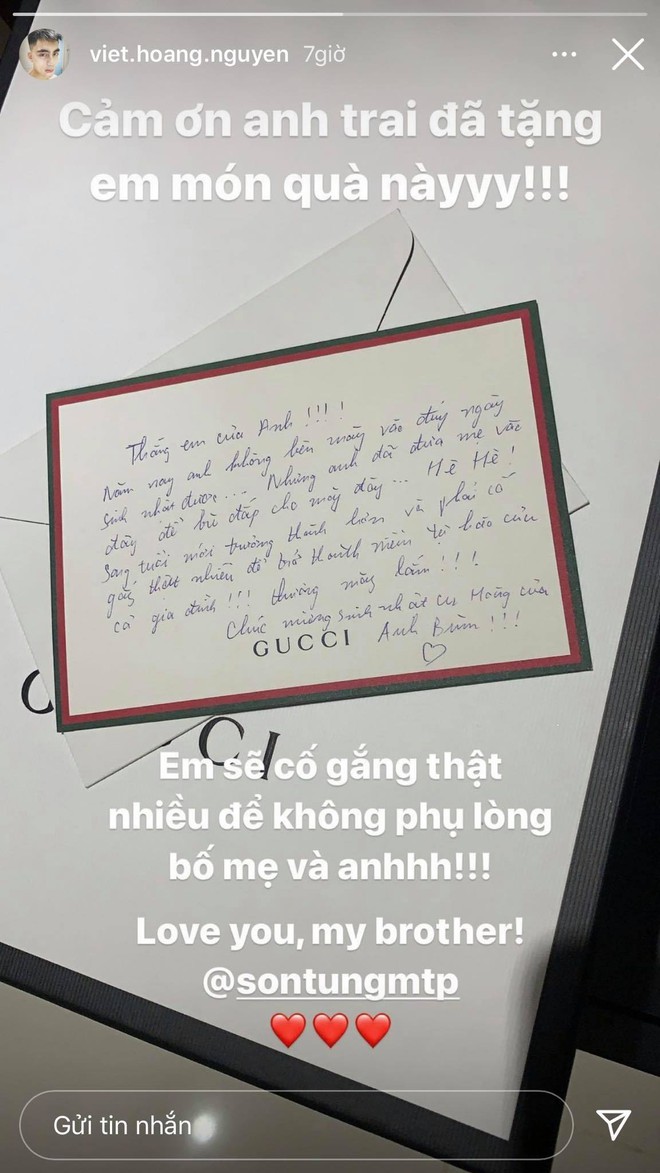 viet.hoang.nguyen 7giờ
Cảm ơn anh trai đã tặng
em món quà nàyyy!!!
Thằng em của Anh !!!!
Năm nay anh không bên mày vào đúng ngày
sinh nhật được... Nhưng anh đã đưa mẹ vào
đây để bù đắp cho mày đây... Hê Hê!
Sang tuổi mới trưởng thành hơn và phải cố
gắng thật nhiều để trở thành niềm tự hào của
cả gia đình!!! thương mày lắm!!!
Chúc mừng sinh nhật cu Hoàng của
Anh Bùm!!!
GUCCI
G CI
Em sẽ cố gắng thật
nhiều để không phụ lòng
bố mẹ và anhhh!!!
Love you, my brother!
@sontungmtp
Gửi tin nhắn